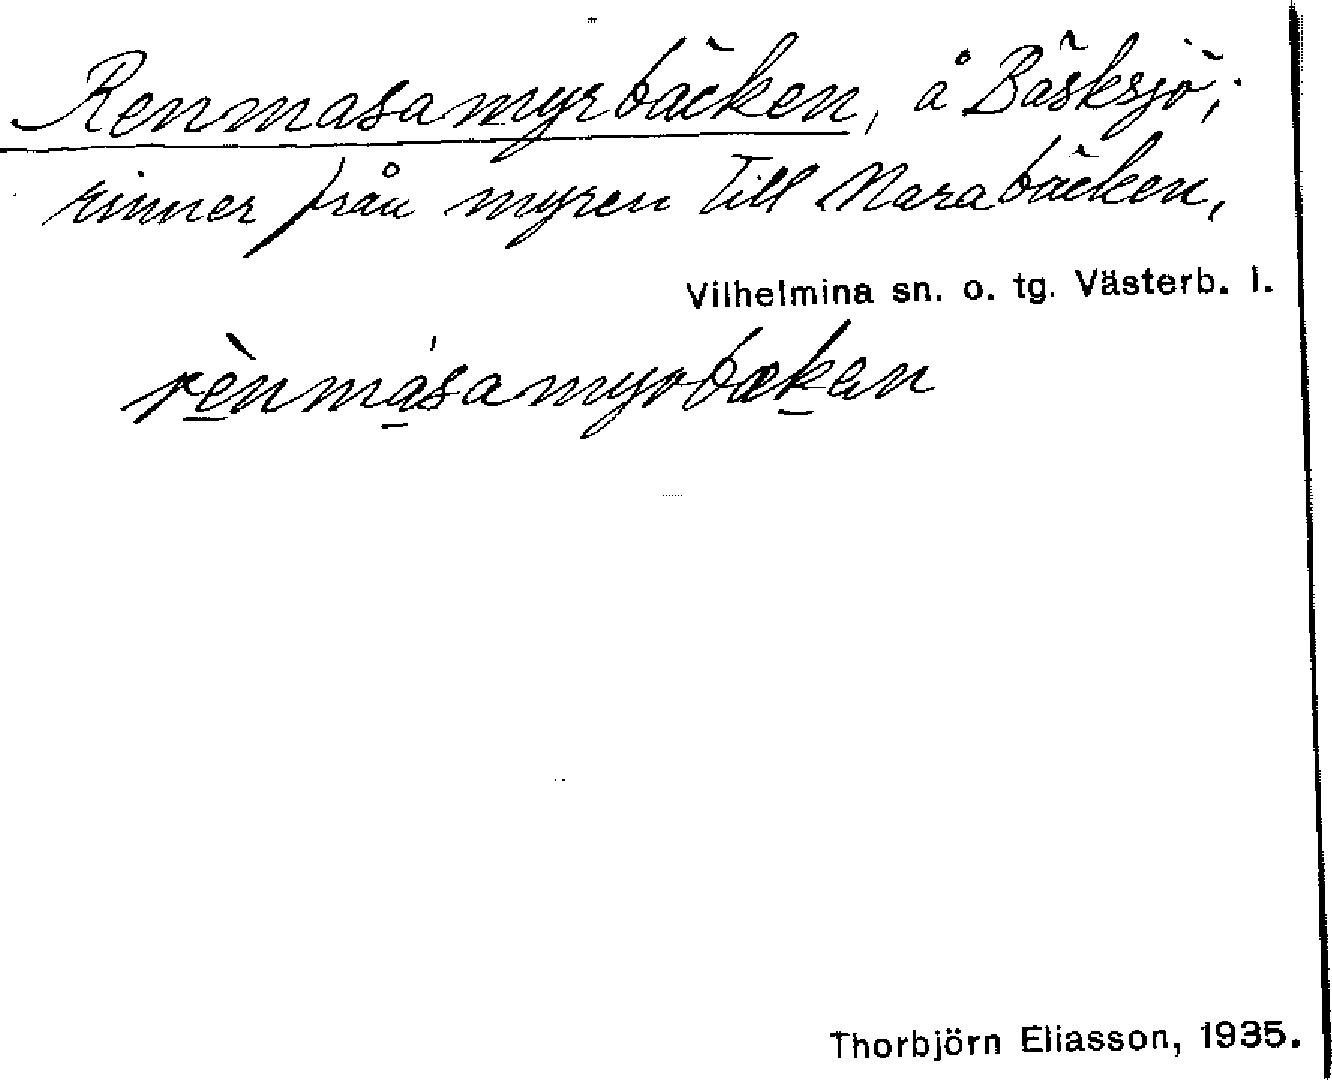 Renmasamyrbäcken, å Bäsksjö;
rinner från myren till Marabäcken,
Vilhelmina sn. o. tg. Västerb. l.
rènmásamyrbækan
Thorbjörn Eliasson, 1935.